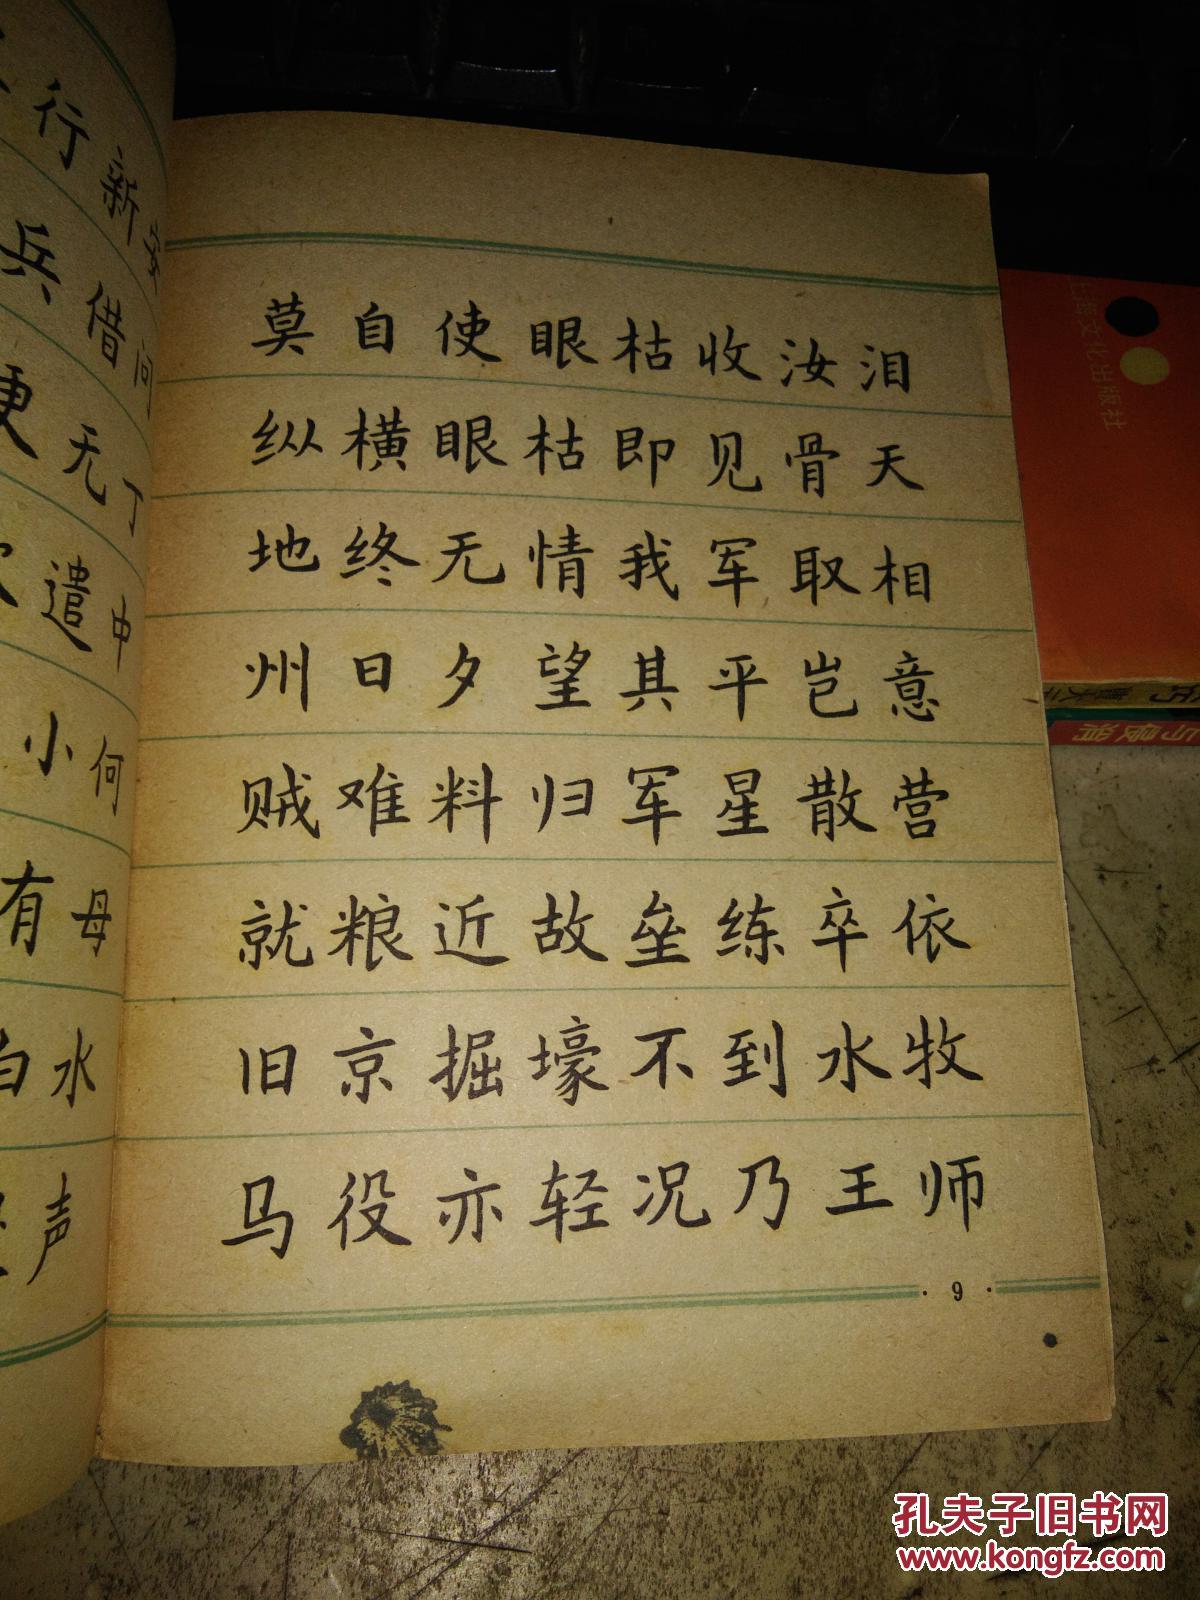 行新安
兵借问
更无丁
遣中
小何
有母
白水
声
莫自使眼枯收汝泪
纵横眼枯即见骨天
地终无情我军取相
州日夕望其平岂意
贼难料归军星散营
就粮近故垒练卒依
旧京掘壕不到水牧
马役亦轻况乃王师
·9·
上海文化出版社
孔夫子旧书网
www.kongfz.com